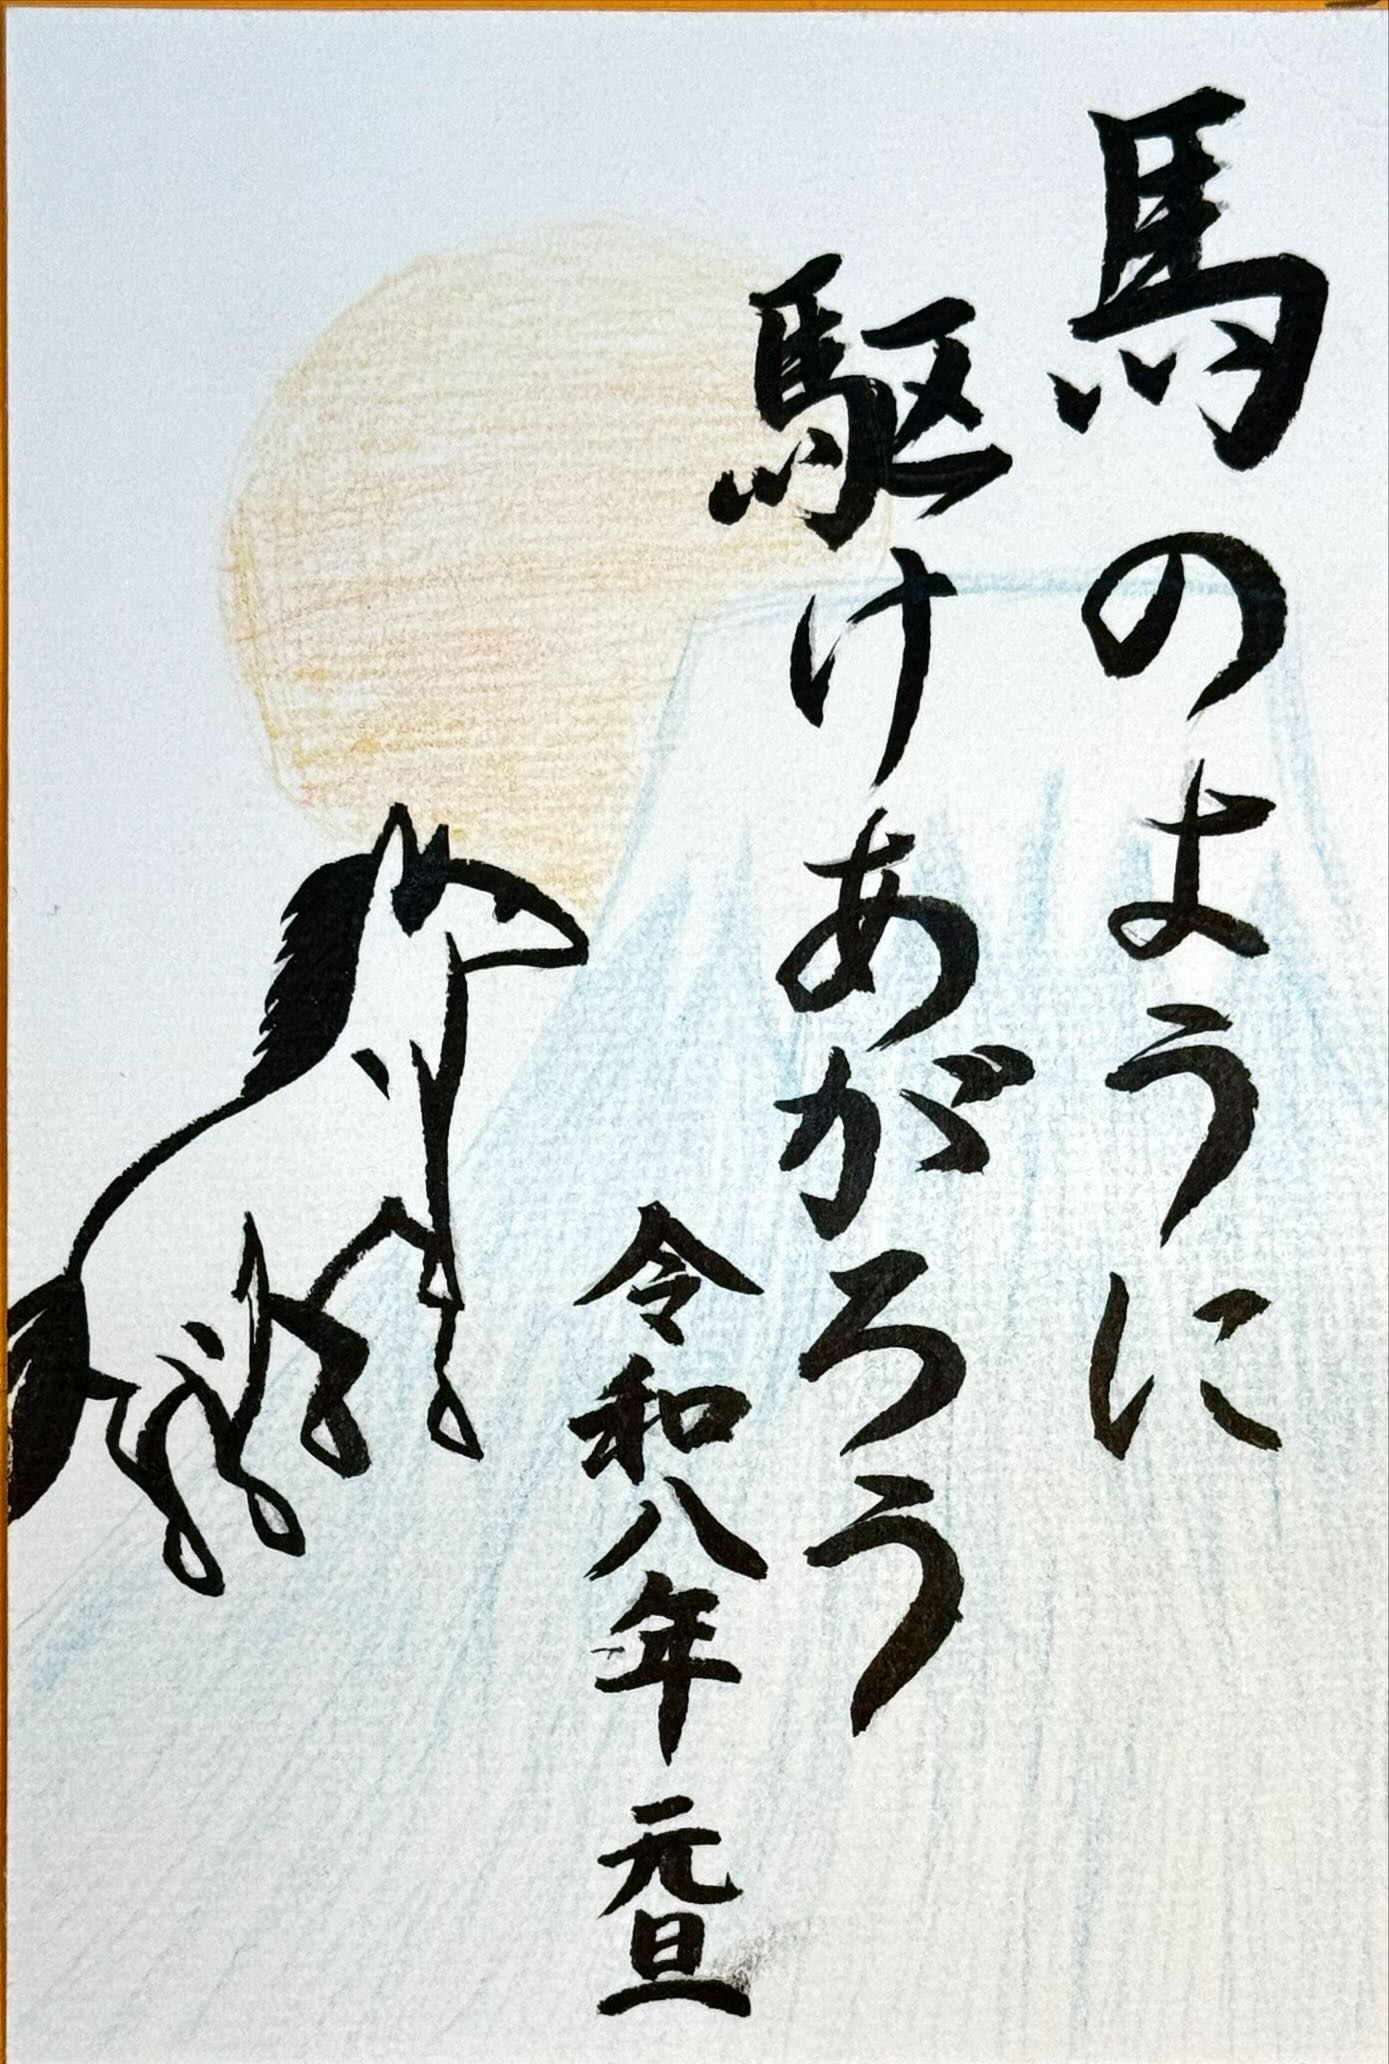 馬のように
駆けあがろう
令和八年 元旦